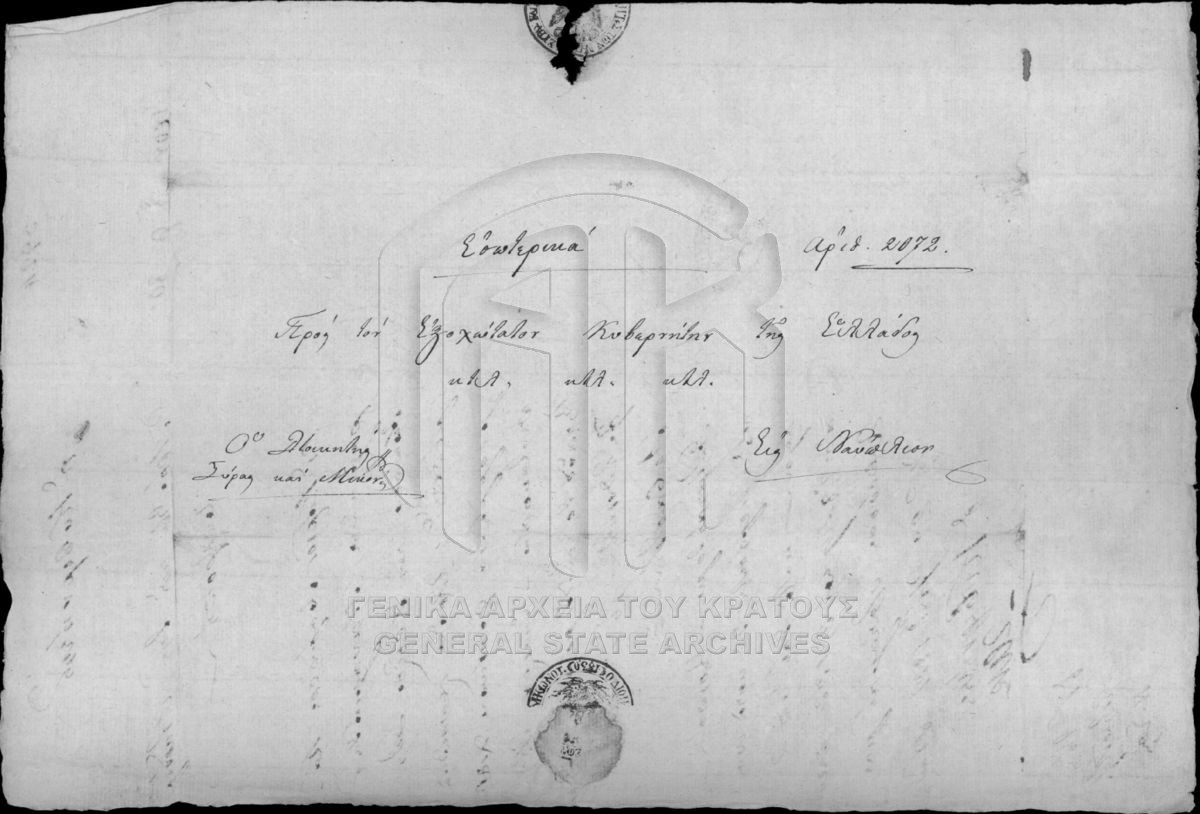 Ἐσωτερικά Ἀριθ. 2072.
Πρὸς τὸν Ἐξοχώτατον Κυβερνήτην τῆς Ἑλλάδος
κτλ. κτλ. κτλ.
Ὁ Διοικητὴς
Σύρας καὶ Μυκόνου
Εἰς Ναύπλιον
ΓΕΝΙΚΑ ΑΡΧΕΙΑ ΤΟΥ ΚΡΑΤΟΥΣ
GENERAL STATE ARCHIVES